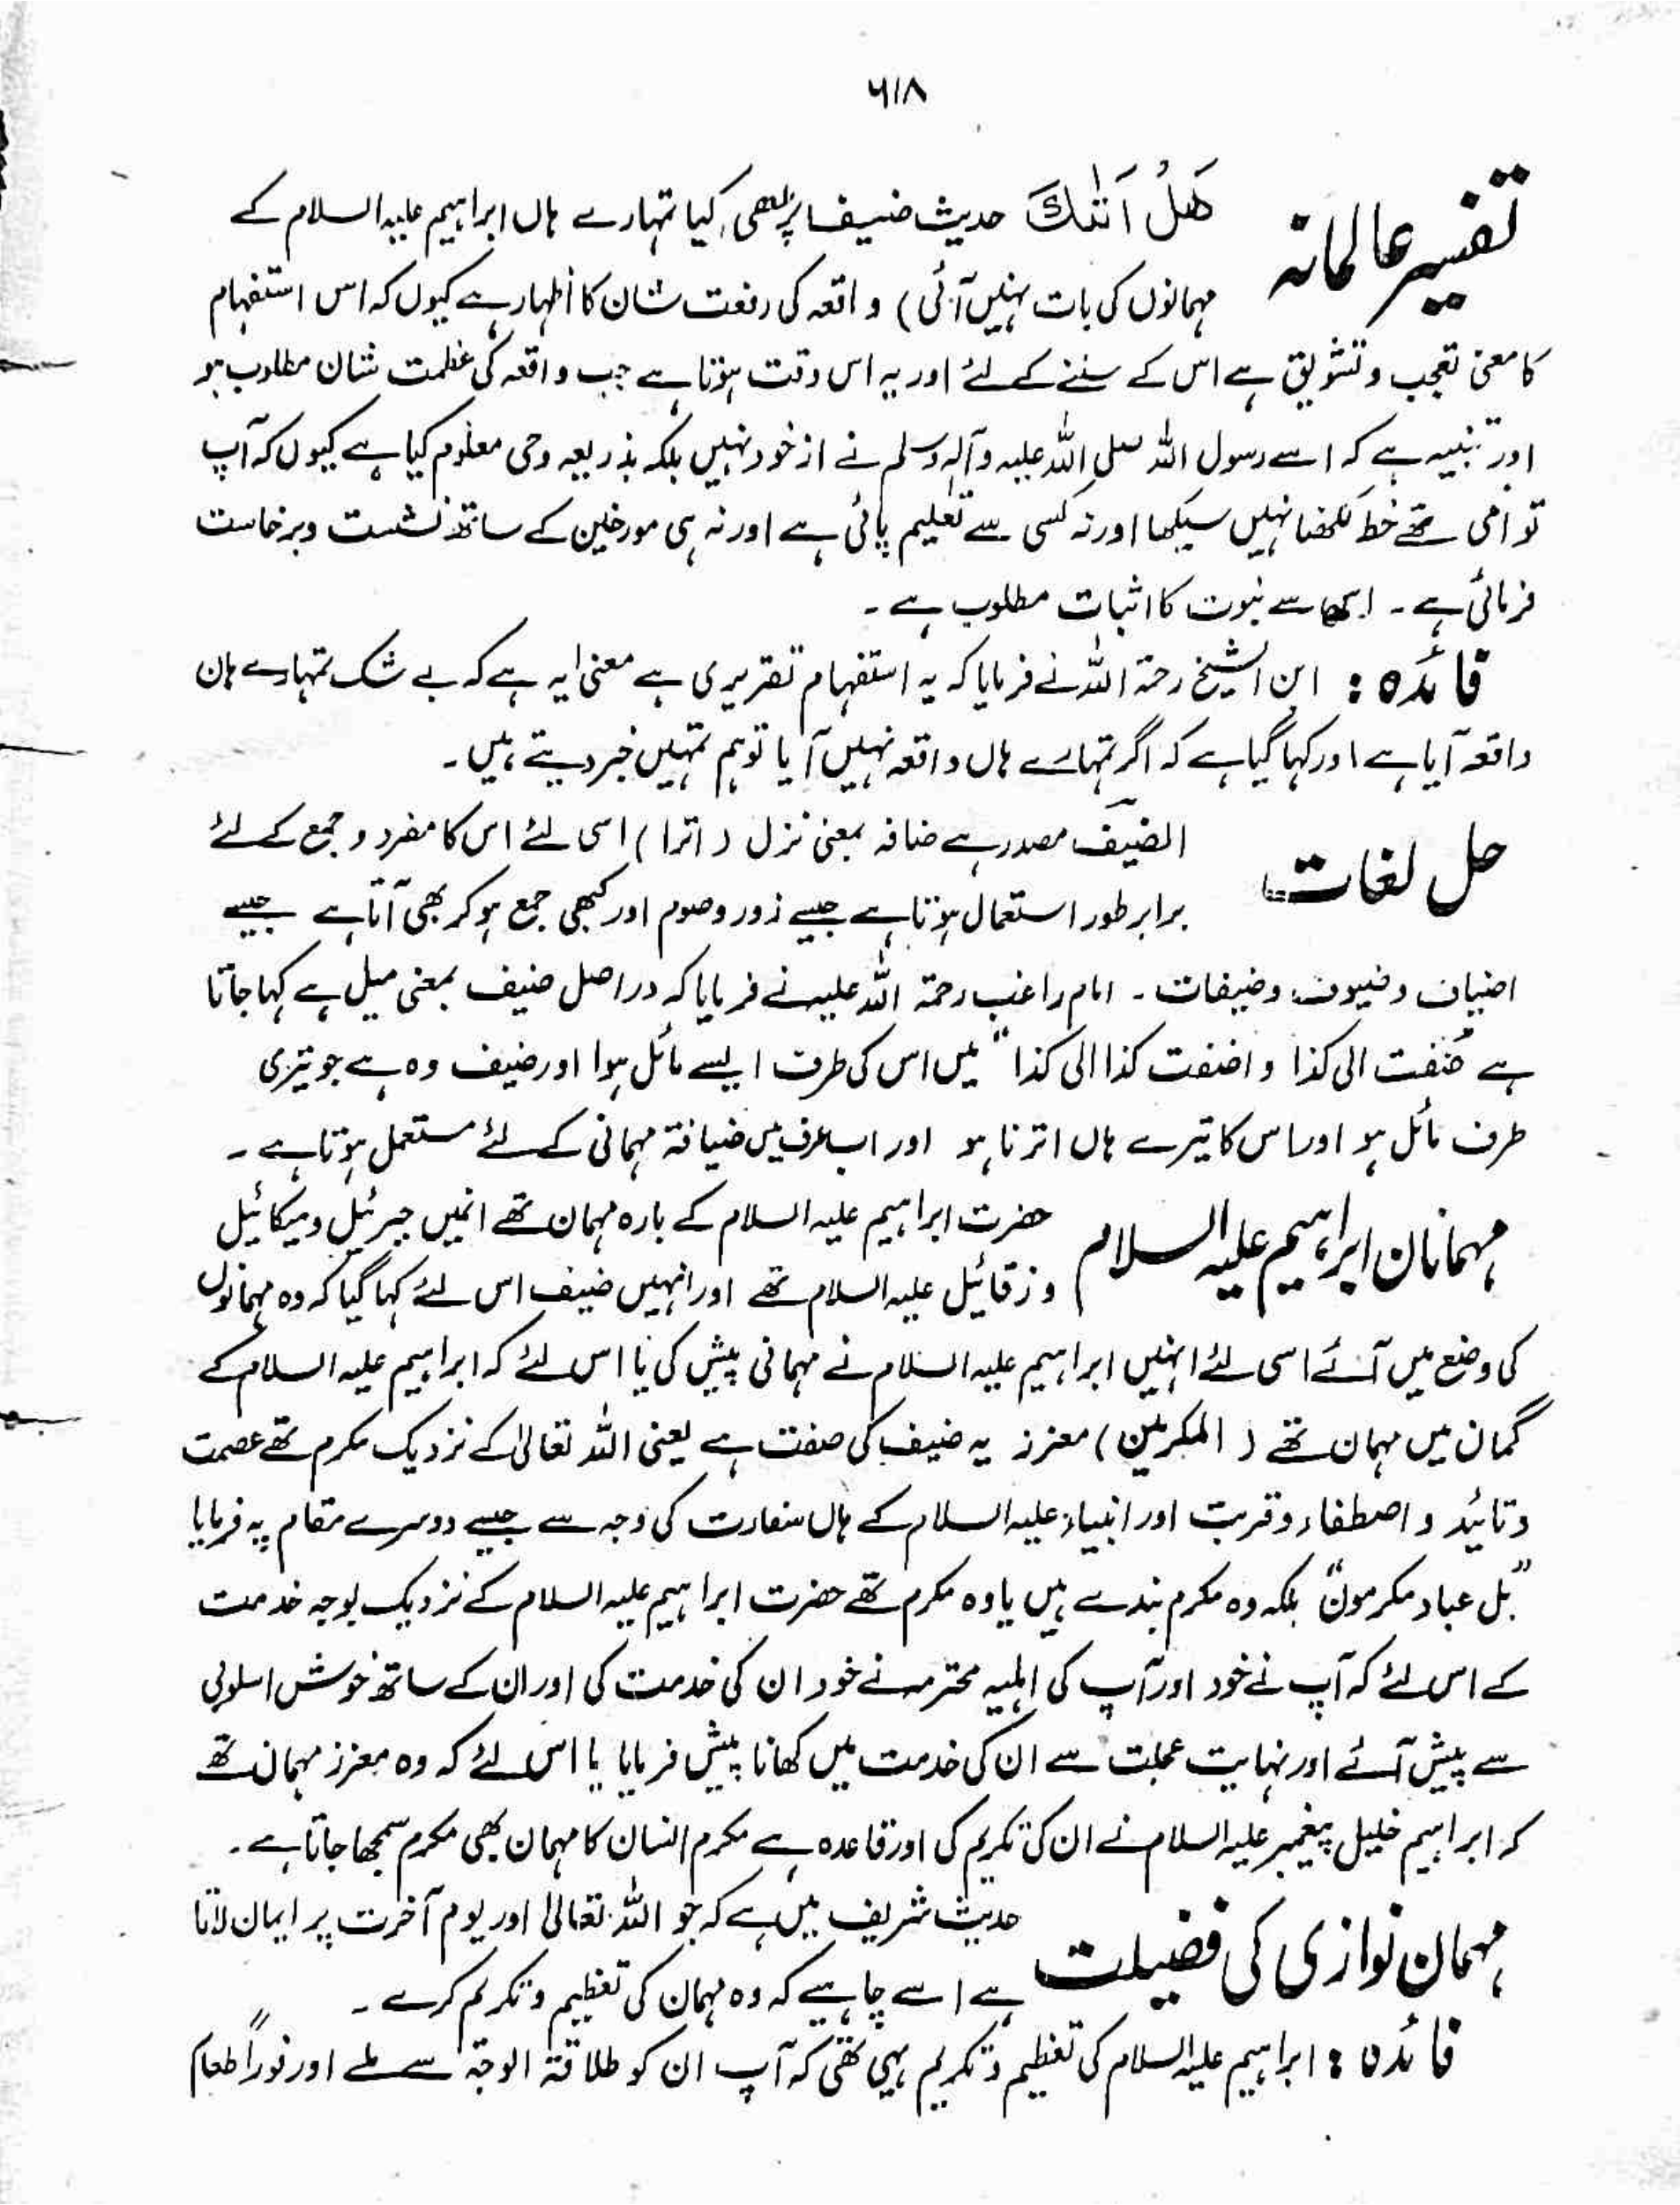 ۶۱۸
تفسیر عالمانہ
هَلْ اَتٰىكَ حدیث ضیف ابراهیم، کیا تمہارے ہاں ابراہیم علیہ السلام کے
مہمانوں کی بات نہیں آئی) واقعہ کی رفعت شان کا اظہار ہے کیوں کہ اس استفہام
کا معنیٰ تعجب و تشویق ہے اس کے سننے کے لئے اور یہ اس وقت ہوتا ہے جب واقعہ کی عظمت شان مطلوب ہو
اور تنبیہ ہے کہ اسے رسول اللہ صلی اللہ علیہ وآلہ وسلم نے از خود نہیں بلکہ بذریعہ وحی معلوم کیا ہے کیوں کہ آپ
تو امی تھے خط لکھنا نہیں سیکھا اور نہ کسی سے تعلیم پائی ہے اور نہ ہی مورخین کے ساتھ نشست و برخاست
فرمائی ہے۔ اس سے نبوت کا اثبات مطلوب ہے۔
فائدہ: ابن الشیخ رحمۃ اللہ نے فرمایا کہ یہ استفہام تقریری ہے معنیٰ یہ ہے کہ بے شک تمہارے ہاں
واقعہ آیا ہے اور کہا گیا ہے کہ اگر تمہارے ہاں واقعہ نہیں آیا تو ہم تمہیں خبر دیتے ہیں۔
حل لغات
الضیف مصدر ہے ضافہ بمعنیٰ نزل (اترا) اسی لئے اس کا مفرد و جمع کے لئے
برابر طور استعمال ہوتا ہے جیسے زور و صوم اور کبھی جمع ہو کر بھی آتا ہے جیسے
اضیاف و ضیوف و ضیفات۔ امام راغب رحمۃ اللہ علیہ نے فرمایا کہ دراصل ضیف بمعنیٰ میل ہے کہا جاتا
ہے ضفت الی کذا و اضفت کذا الی کذا" میں اس کی طرف ایسے مائل ہوا اور ضیف وہ ہے جو تیری
طرف مائل ہو اور اس کا تیرے ہاں اترنا ہو اور اب عرف میں ضیافۃ مہمانی کے لئے مستعمل ہوتا ہے۔
مہمانان ابراہیم علیہ السلام
حضرت ابراہیم علیہ السلام کے بارہ مہمان تھے انمیں جبرئیل و میکائیل
و زقائیل علیہ السلام تھے اور انہیں ضیف اس لئے کہا گیا کہ وہ مہمانوں
کی وضع میں آئے اسی لئے انہیں ابراہیم علیہ السلام نے مہمانی پیش کی یا اس لئے کہ ابراہیم علیہ السلام کے
گمان میں مہمان تھے (المکرمین) معزز یہ ضیف کی صفت ہے یعنی اللہ تعالیٰ کے نزدیک مکرم تھے عصمت
و تائید و اصطفاء و قربت اور انبیاء علیہ السلام کے ہاں سفارت کی وجہ سے جیسے دوسرے مقام پہ فرمایا
"بل عباد مکرمون" بلکہ وہ مکرم بندے ہیں یا وہ مکرم تھے حضرت ابراہیم علیہ السلام کے نزدیک بوجہ خدمت
کے اس لئے کہ آپ نے خود اور آپ کی اہلیہ محترمہ نے خود ان کی خدمت کی اور ان کے ساتھ خوش اسلوبی
سے پیش آئے اور نہایت عجلت سے ان کی خدمت میں کھانا پیش فرمایا یا اس لئے کہ وہ معزز مہمان تھے
کہ ابراہیم خلیل پیغمبر علیہ السلام نے ان کی تکریم کی اور قاعدہ ہے مکرم انسان کا مہمان بھی مکرم سمجھا جاتا ہے۔
مہمان نوازی کی فضیلت
حدیث شریف میں ہے کہ جو اللہ تعالیٰ اور یوم آخرت پر ایمان لاتا
ہے اسے چاہیے کہ وہ مہمان کی تعظیم و تکریم کرے۔
فائدہ: ابراہیم علیہ السلام کی تعظیم و تکریم یہی تھی کہ آپ ان کو طلاقۃ الوجہ سے ملے اور فوراً طعام